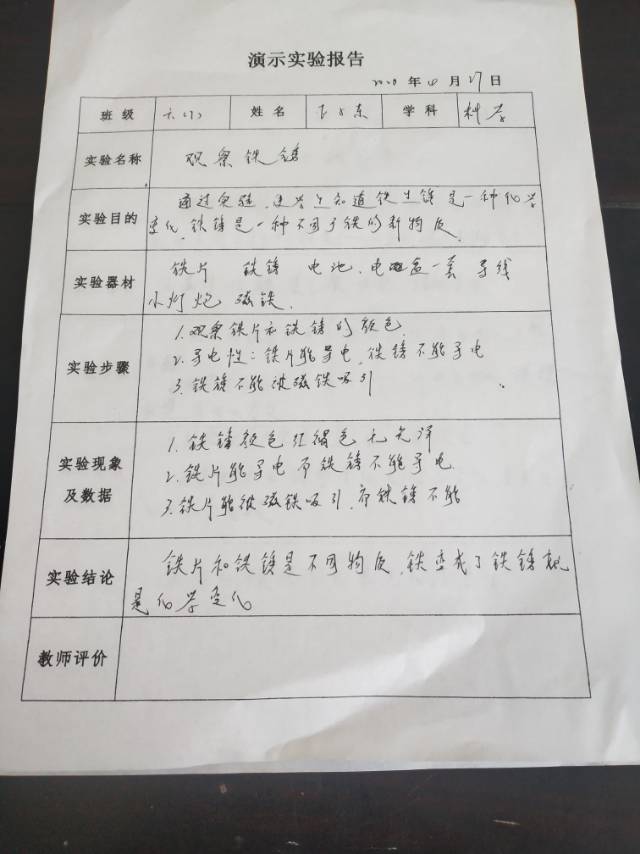 演示实验报告
2020 年 10 月 27 日
班级 六(1) 姓名 东 学科 科学
实验名称 观察铁锈
实验目的 通过实验,使学生知道铁生锈是一种化学
变化,铁锈是一种不同于铁的新物质.
实验器材 铁片 铁锈 电池、电池盒一套 导线
小灯炮 磁铁.
实验步骤 1.观察铁片和铁锈的颜色.
2.导电性:铁片能导电,铁锈不能导电
3.铁锈不能被磁铁吸引
实验现象及数据 1.铁锈颜色红褐色无光泽
2.铁片能导电而铁锈不能导电.
3.铁片能被磁铁吸引,而铁锈不能
实验结论 铁片和铁锈是不同物质,铁变成了铁锈就
是化学变化
教师评价